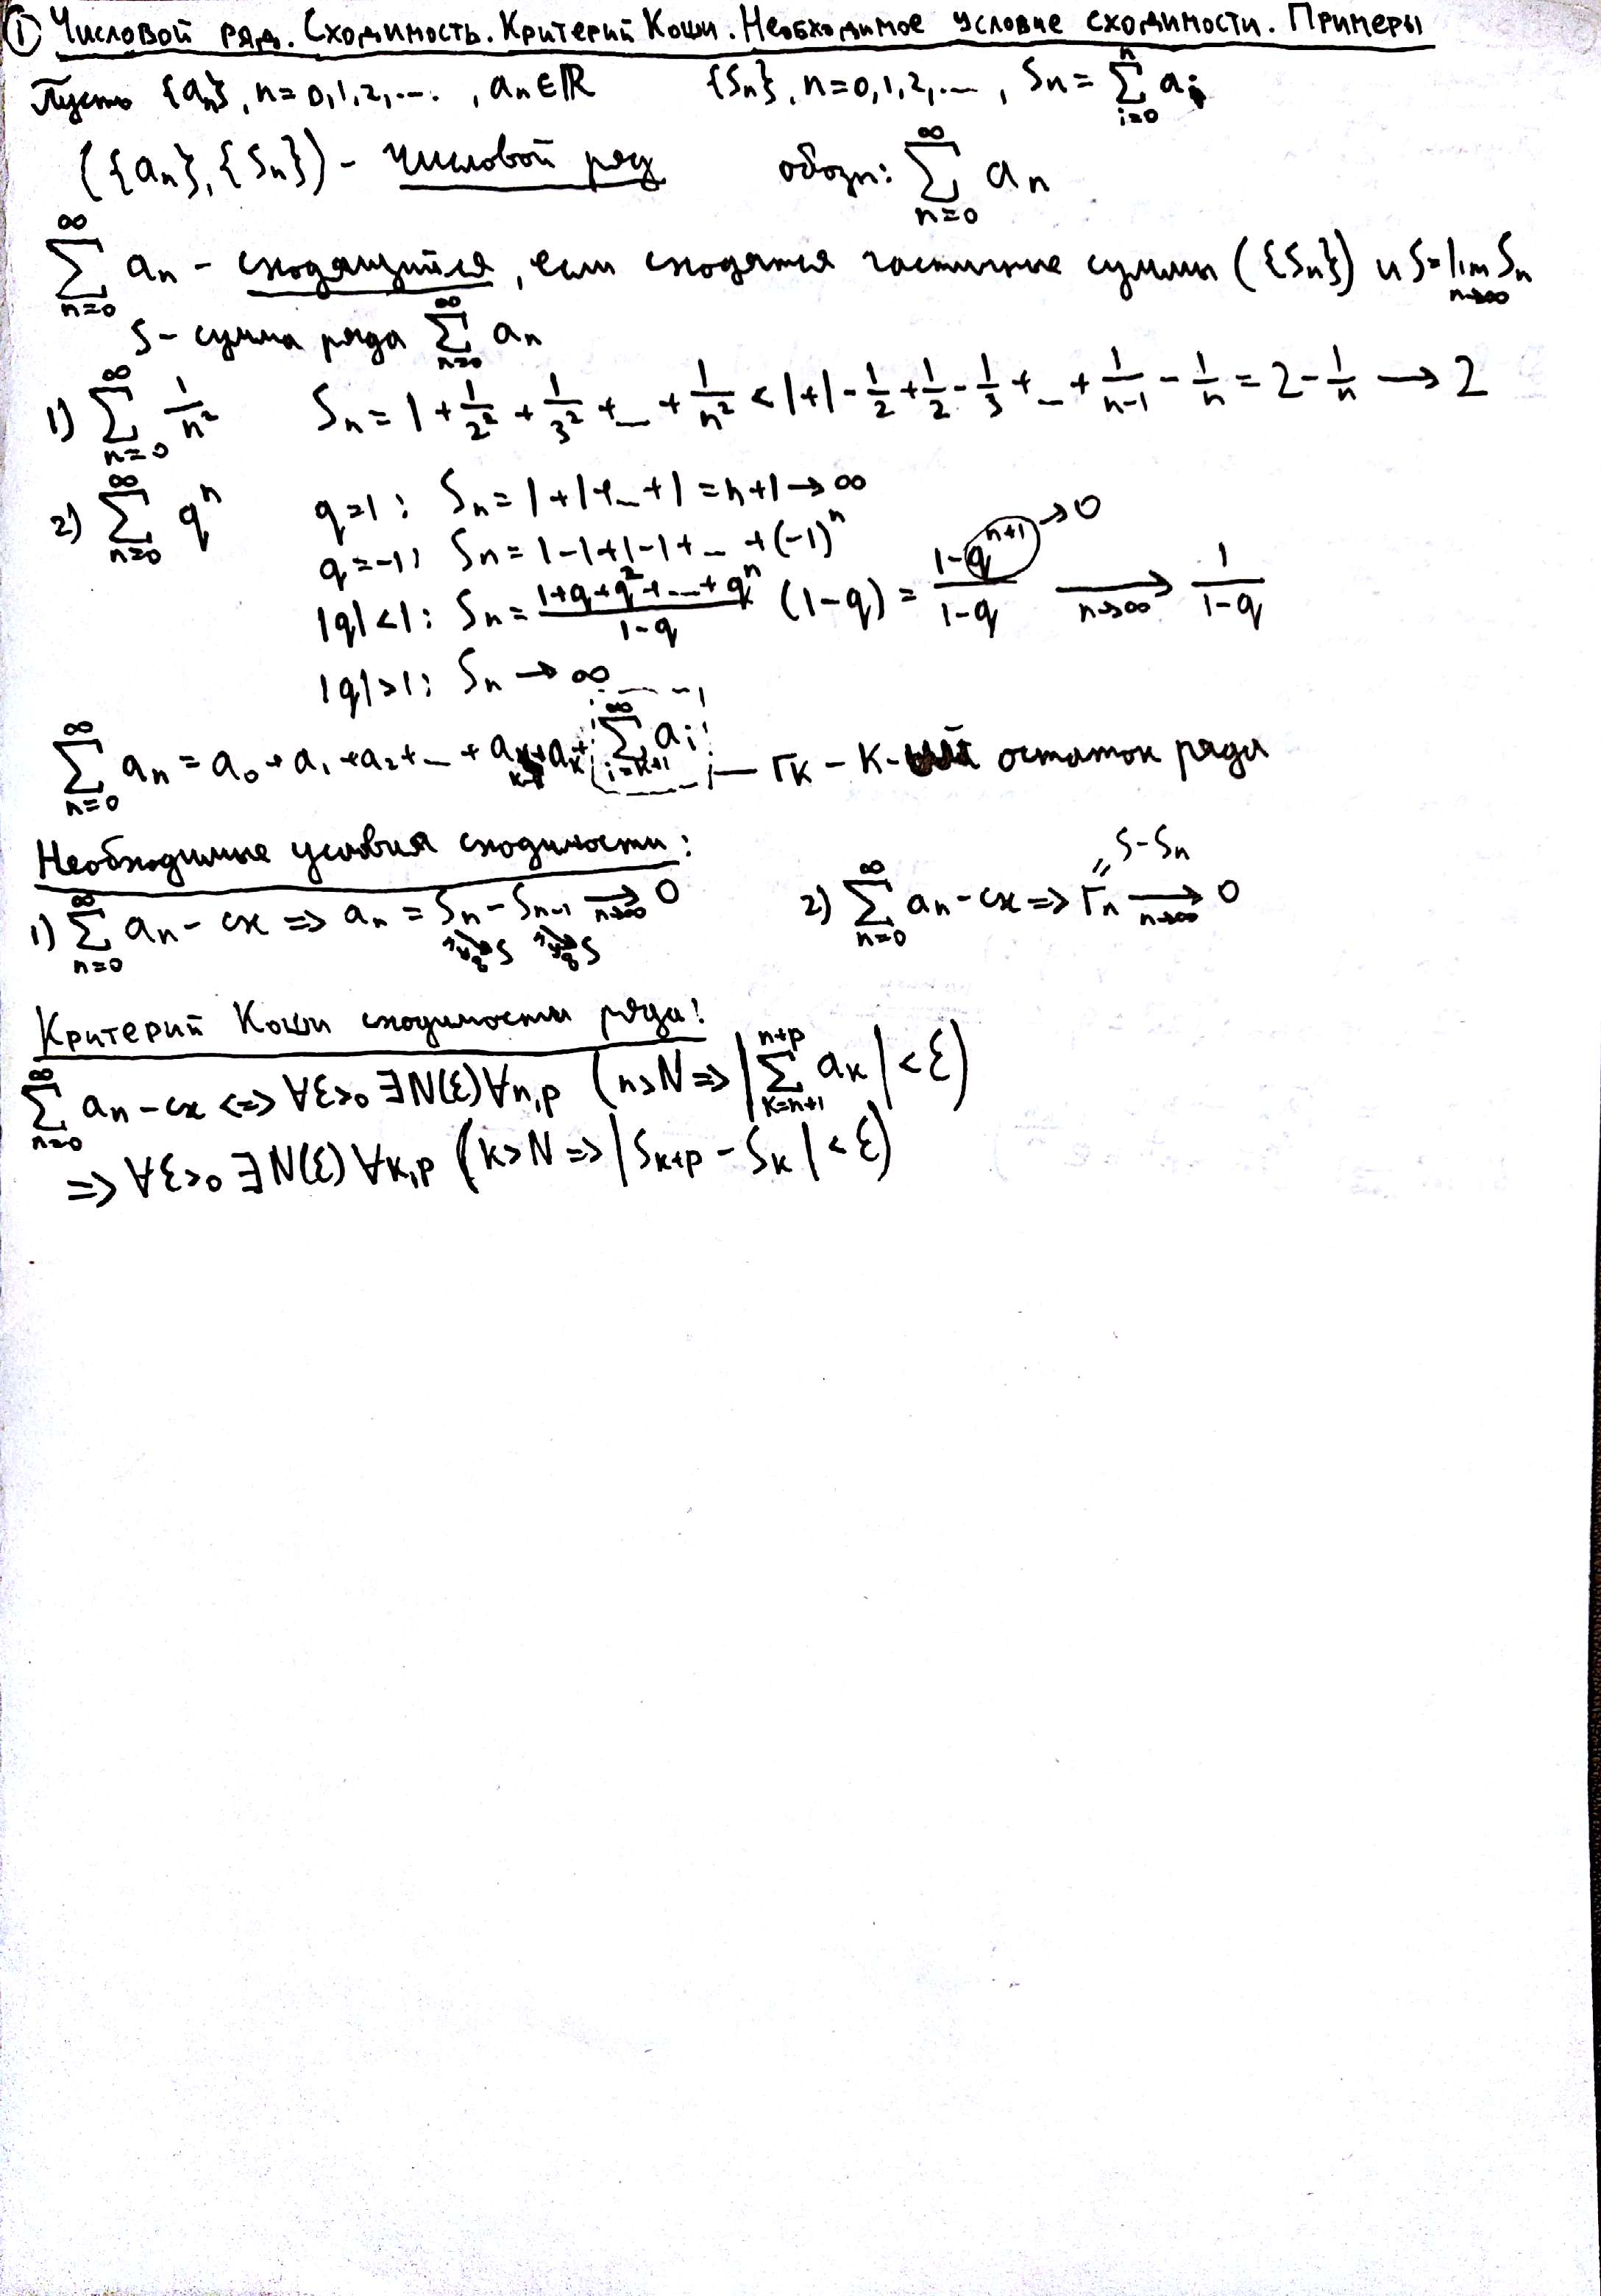 ① Числовой ряд. Сходимость. Критерий Коши. Необходимое условие сходимости. Примеры
Пусть {aₙ}, n=0,1,2,..., aₙ∈ℝ {Sₙ}, n=0,1,2,..., Sₙ = ∑_{i=0}^{n} aᵢ
({aₙ},{Sₙ}) - числовой ряд обозн: ∑_{n=0}^{∞} aₙ
∑_{n=0}^{∞} aₙ - сходящийся, если сходятся частичные суммы ({Sₙ}) и S = lim_{n→∞} Sₙ
S - сумма ряда ∑_{n=0}^{∞} aₙ
1) ∑_{n=0}^{∞} 1/n² Sₙ = 1 + 1/2² + 1/3² + ... + 1/n² < 1+1 - 1/2 + 1/2 - 1/3 + ... + 1/(n-1) - 1/n = 2 - 1/n → 2
2) ∑_{n=0}^{∞} qⁿ q=1: Sₙ = 1+1+...+1 = n+1 → ∞
q=-1: Sₙ = 1-1+1-1+...+(-1)ⁿ
|q|<1: Sₙ = (1+q+q²+...+qⁿ)/(1-q) (1-q) = (1-qⁿ⁺¹)/(1-q) →_{n→∞} 1/(1-q) → 0
|q|>1: Sₙ → ∞
∑_{n=0}^{∞} aₙ = a₀+a₁+a₂+...+a_{k-1}+a_k+ ∑_{i=k+1}^{∞} aᵢ — r_k - k-ый остаток ряда
Необходимые условия сходимости:
1) ∑_{n=0}^{∞} aₙ - сх => aₙ = Sₙ - Sₙ₋₁ →_{n→∞} 0 2) ∑_{n=0}^{∞} aₙ - сх => rₙ →_{n→∞} 0 = S-Sₙ
n→∞ S n→∞ S
Критерий Коши сходимости ряда:
∑_{n=0}^{∞} aₙ - сх <=> ∀ε>0 ∃N(ε) ∀n,p (n>N => |∑_{k=n+1}^{n+p} a_k| < ε)
=> ∀ε>0 ∃N(ε) ∀k,p (k>N => |S_{k+p} - S_k| < ε)